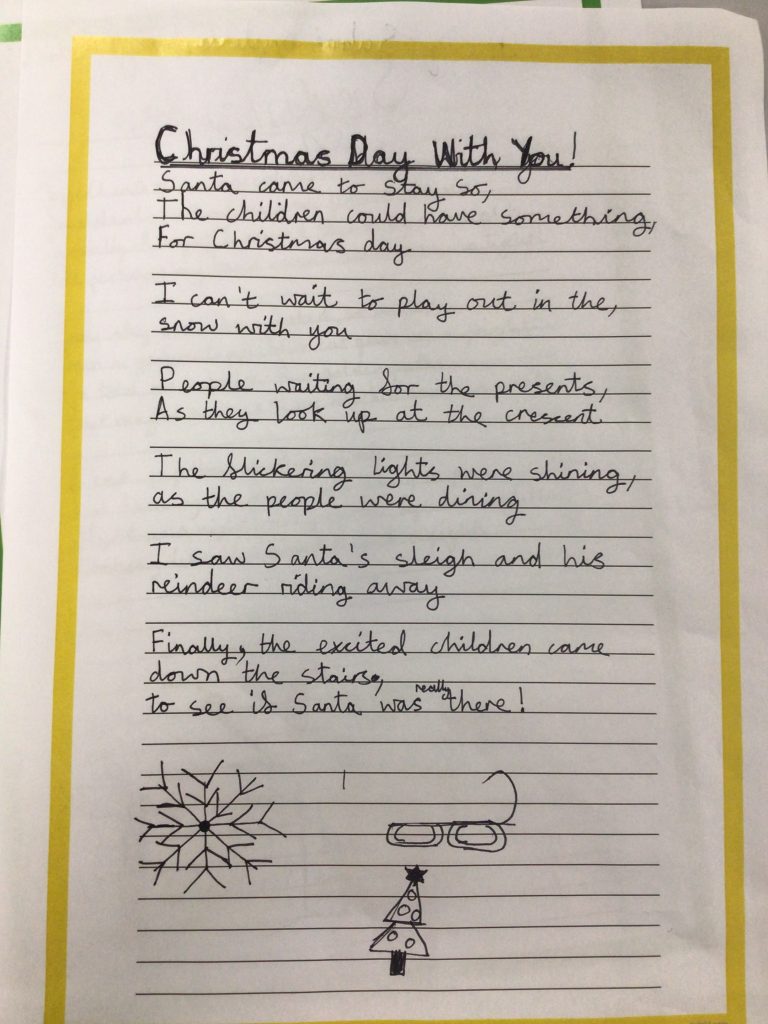 Christmas Day With You!
Santa came to stay so,
The children could have something,
For Christmas day
I can't wait to play out in the,
snow with you
People waiting for the presents,
As they look up at the crescent
The flickering lights were shining,
as the people were dining
I saw Santa's sleigh and his
reindeer riding away
Finally, the excited children came
down the stairs,
to see if Santa was really there!